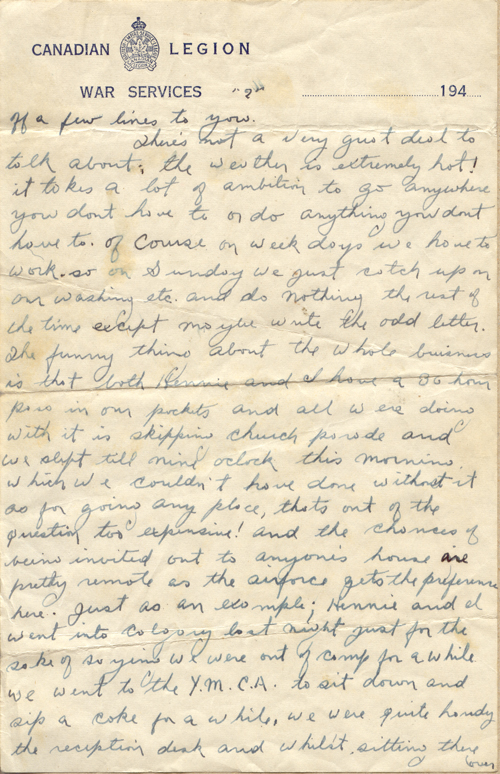 CANADIAN LEGION
WAR SERVICES "2" 194
of a few lines to you.
There's not a very great deal to
talk about, the weather is extremely hot!
it takes a lot of ambition to go anywhere
you dont have to or do anything you dont
have to. of course on week days we have to
work. so on Sunday we just catch up on
our washing etc. and do nothing the rest of
the time except maybe write the odd letter.
The funny thing about the whole business
is that both Hennie and I have a 36 hour
pass in our pockets and all were doing
with it is skipping church parade and
we slept till nine oclock this morning.
which we couldn't have done without it
as for going any place, thats out of the
question too expensive! and the chances of
being invited out to anyones house are
pretty remote as the airforce gets the preference
here. Just as an example; Hennie and I
went into Calgary last night just for the
sake of saying we were out of camp for a while
we went to the Y.M.C.A. to sit down and
sip a coke for a while, we were quite handy
the reception desk and whilst sitting there
(over